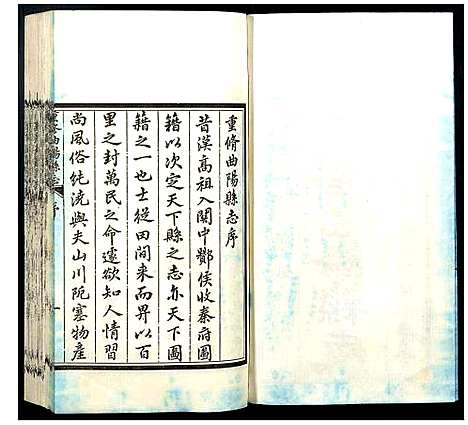 重脩曲陽縣志序
昔漢高祖入關中酇侯收秦府圖
籍以次定天下縣之志亦天下圖
籍之一也士從田間来而畀以百
里之封萬民之命遽欲知人情習
尚風俗純澆與夫山川阨塞物產
曲陽縣志
序
一